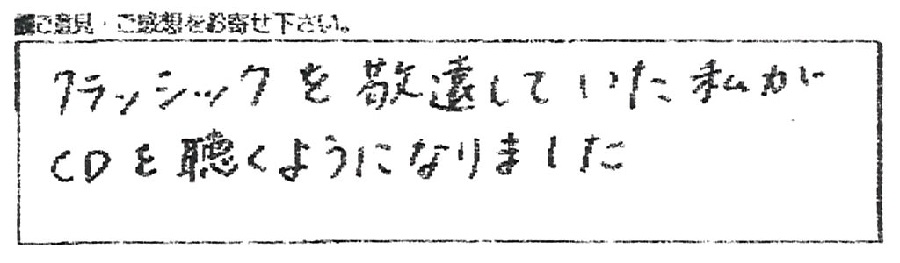 ■ご意見・ご感想をお寄せ下さい。
クラッシックを敬遠していた私が
CDを聴くようになりました